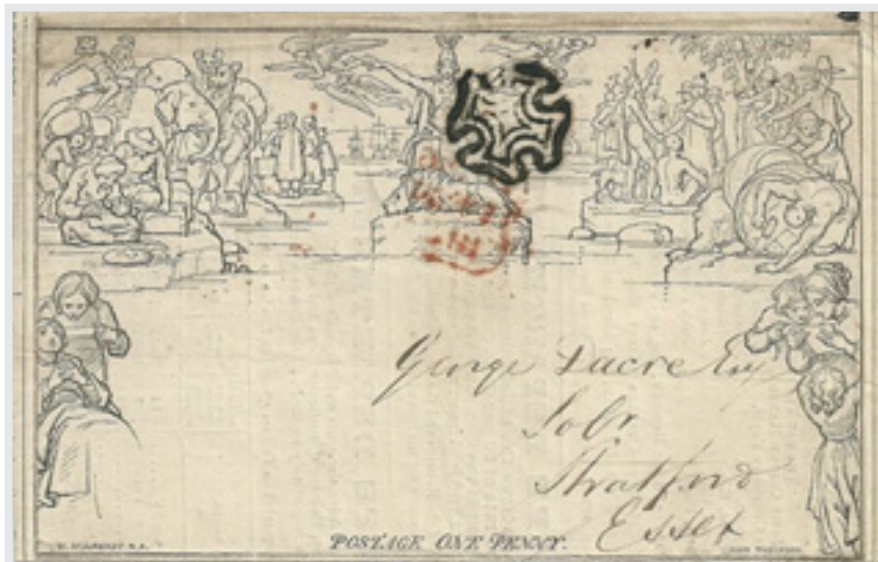 George Dacre Esq
Solr
Stratford
Essex
W. MULREADY R.A.
POSTAGE ONE PENNY.
JOHN THOMPSON